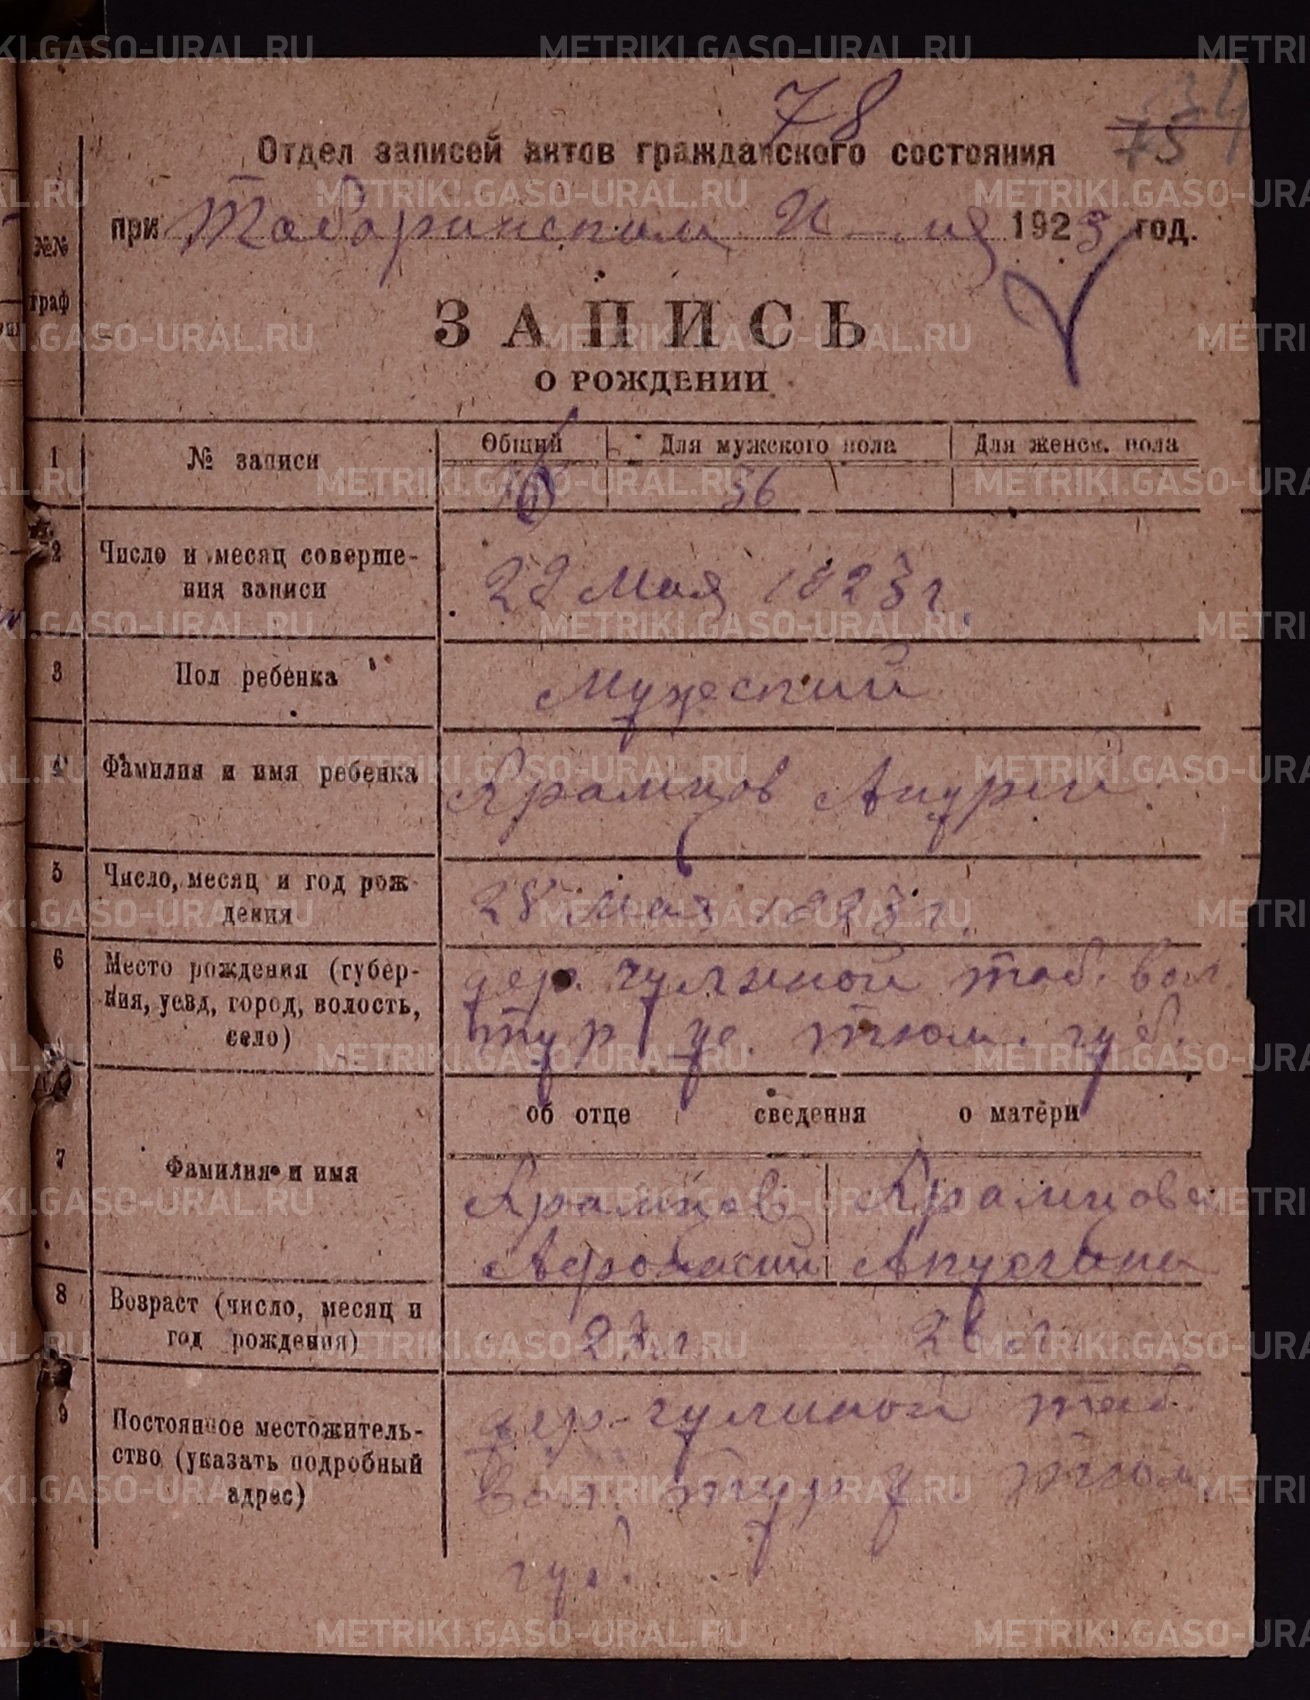 78
34
75
Отдел записей актов гражданского состояния
при Таборинском И 1923 год.
№№ граф
ЗАПИСЬ
О РОЖДЕНИИ
1 № записи
Общий Для мужского пола Для женск. пола
36
2 Число и месяц соверше-
ния записи
28 Мая 1923 г.
3 Пол ребенка Мужеский
4 Фамилия и имя ребенка Храмцов Андрей
5 Число, месяц и год рож
дения
28 Мая 1923 г.
6 Место рождения (губер-
ния, уезд, город, волость,
село)
дер. Чулиной Таб. вол.
Тур уе. Тюм. губ.
об отце сведения о матери
7 Фамилия и имя
Храмцов Храмцова
Афонасий
8 Возраст (число, месяц и
год рождения)
23 г. 26 г.
9 Постоянное местожитель-
ство (указать подробный
адрес)
дер. Чулиной Таб
Вол. Тур у Тюм.
губ.
METRIKI.GASO-URAL.RU